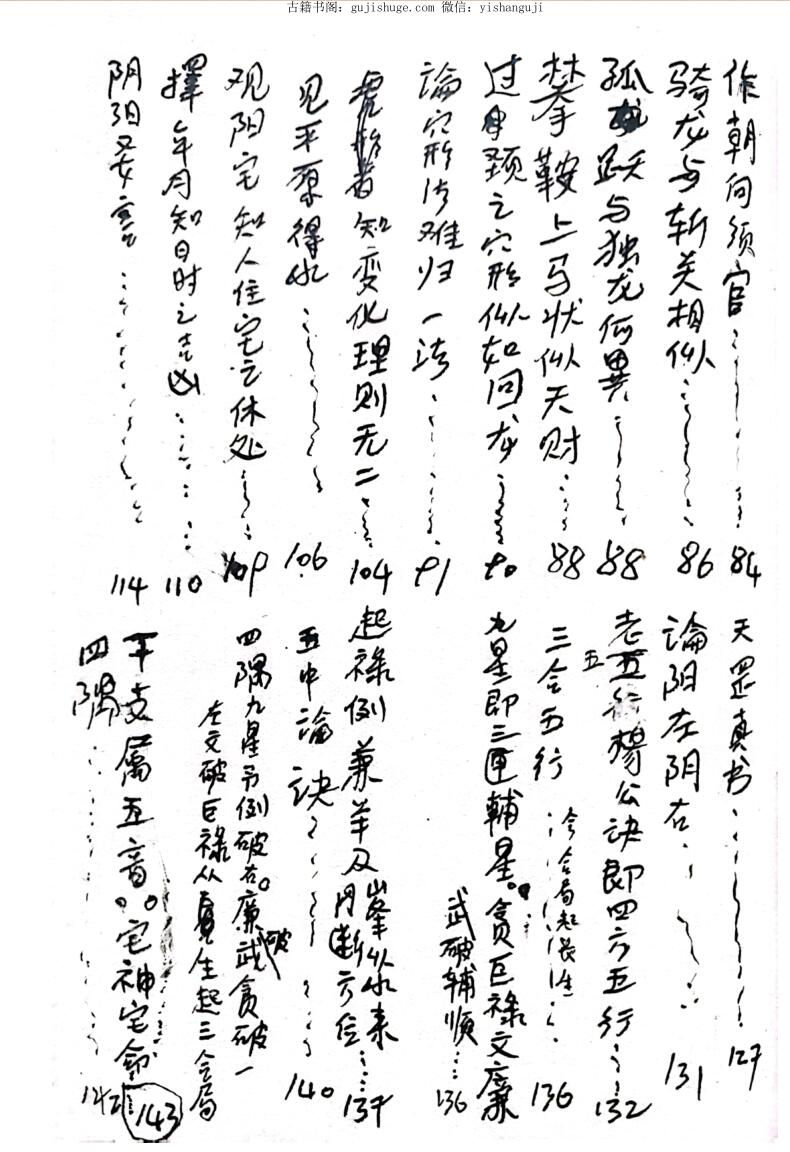 古籍书阁：gujishuge.com 微信：yishanguji
作朝向须官 84
骑龙与斩关相似 86
孤龙跃与独龙何異 88
攀鞍上马状似天财 88
过颈之穴形似如回龙 90
論穴形法难归一法 91
者知变化理则无二 104
见平原得水 106
观阳宅知人住宅之休处 109
擇年月知日时之吉凶 110
阴阳妥言 114
天罡真书 127
論阳左阴右 131
老五行楊公訣即四六五行 132
三合五行 合局起長生 136
九星即三匣輔星。貪巨祿文廉
武破輔順 136
起祿例兼羊及峯似水来
方位 137
五中論訣 140
四隅九星另例破右。廉武貪破一
左文破巨祿从生起三合局
干支屬五音。宅神宅命 143
四隅 142